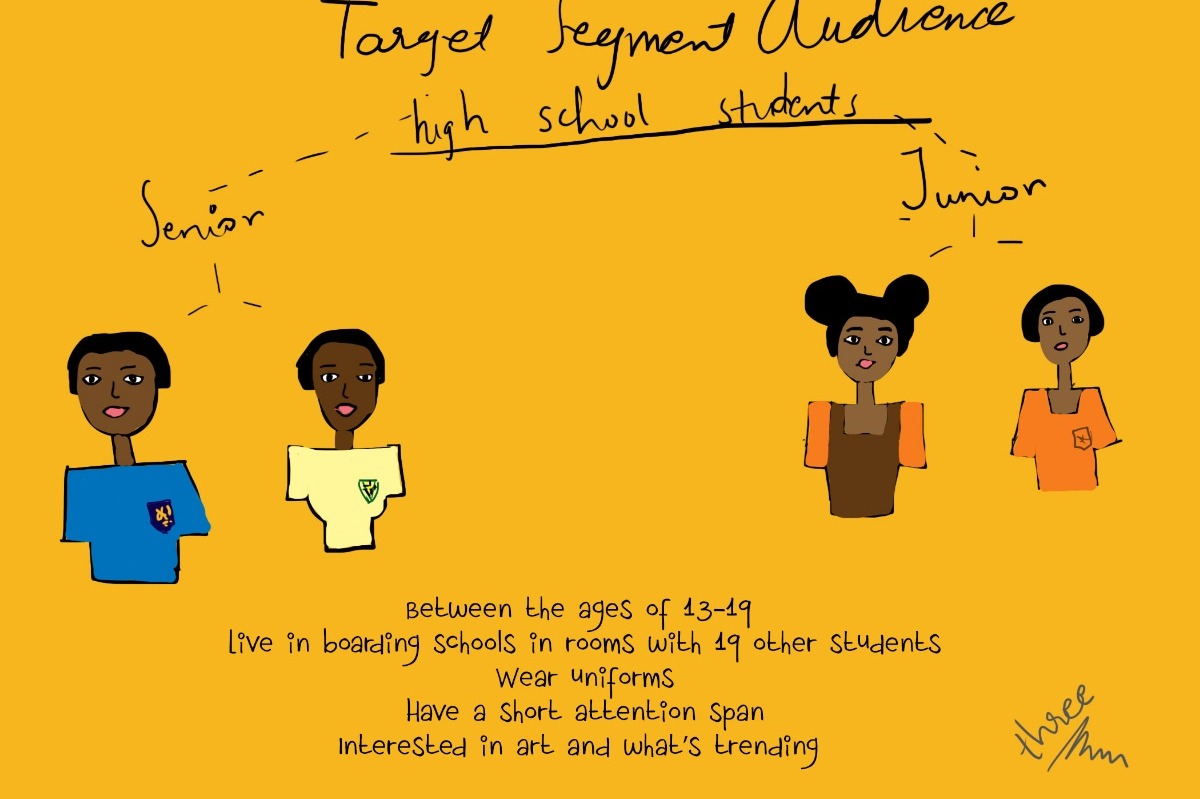 Target Segment Audience
high school students
Senior
Junior
Between the ages of 13-19
live in boarding schools in rooms with 19 other students
Wear uniforms
Have a short attention span
Interested in art and what's trending
three